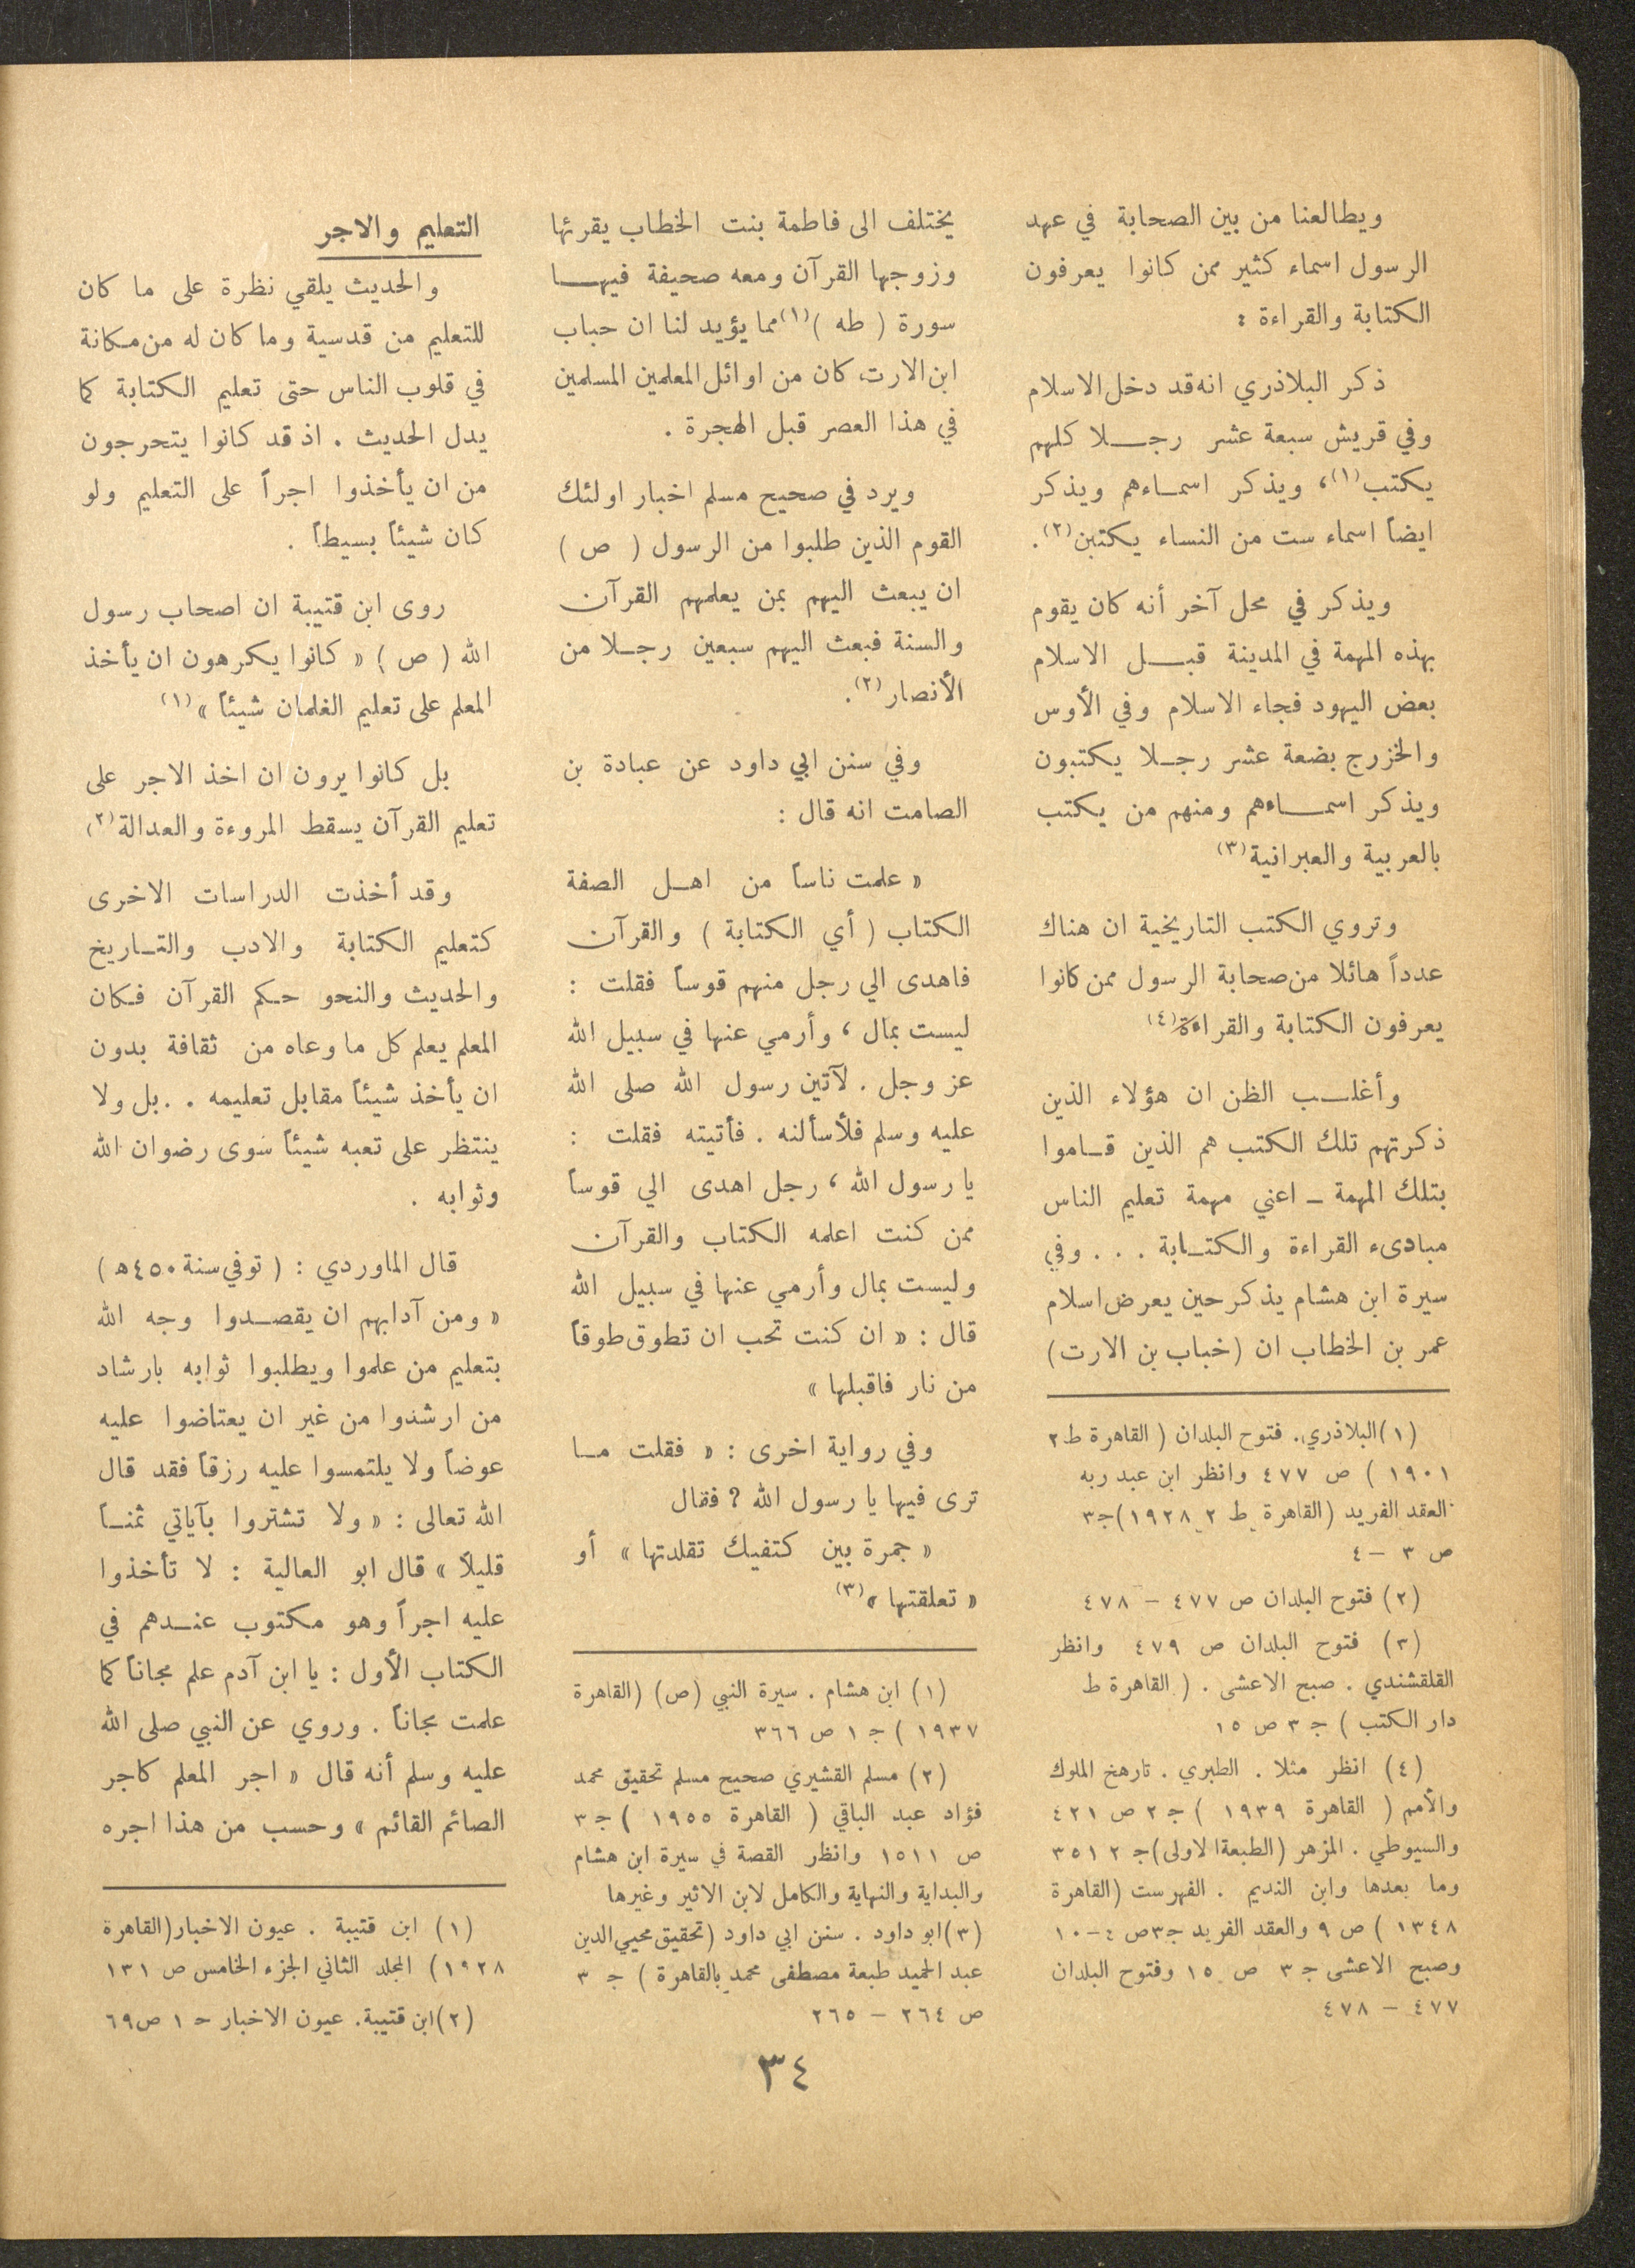 ويطالعنا من بين الصحابة في عهد
الرسول اسماء كثير ممن كانوا يعرفون
الكتابة والقراءة :
ذكر البلاذري انه قد دخل الاسلام
وفي قريش سبعة عشر رجلا كلهم
يكتب (١)، ويذكر اسماءهم ويذكر
ايضاً اسماء ست من النساء يكتبن (٢).
ويذكر في محل آخر أنه كان يقوم
بهذه المهمة في المدينة قبل الاسلام
بعض اليهود فجاء الاسلام وفي الأوس
والخزرج بضعة عشر رجلا يكتبون
ويذكر اسماءهم ومنهم من يكتب
بالعربية والعبرانية (٣)
وتروي الكتب التاريخية ان هناك
عدداً هائلا من صحابة الرسول ممن كانوا
يعرفون الكتابة والقراءة (٤)
وأغلب الظن ان هؤلاء الذين
ذكرتهم تلك الكتب هم الذين قاموا
بتلك المهمة ـ اعني مهمة تعليم الناس
مبادىء القراءة والكتابة . . . وفي
سيرة ابن هشام يذكر حين يعرض اسلام
عمر بن الخطاب ان (خباب بن الارت)
(١) البلاذري. فتوح البلدان ( القاهرة ط ٢
١٩٠١ ) ص ٤٧٧ وانظر ابن عبد ربه
العقد الفريد (القاهرة ط ٢ ١٩٢٨) ج ٣
ص ٣ – ٤
(٢) فتوح البلدان ص ٤٧٧ – ٤٧٨
(٣) فتوح البلدان ص ٤٧٩ وانظر
القلقشندي . صبح الاعشى . ( القاهرة ط
دار الكتب ) ج ٣ ص ١٥
(٤) انظر مثلا . الطبري . تارهخ الملوك
والأمم ( القاهرة ١٩٣٩ ) ج ٢ ص ٤٢١
والسيوطي . المزهر (الطبعة الاولى) ج ٢ ٣٥١
وما بعدها وابن النديم . الفهرست (القاهرة
١٣٤٨ ) ص ٩ والعقد الفريد ج ٣ ص ٤ – ١٠
وصبح الاعشى ج ٣ ص ١٥ وفتوح البلدان
٤٧٧ – ٤٧٨
يختلف الى فاطمة بنت الخطاب يقرئها
وزوجها القرآن ومعه صحيفة فيها
سورة ( طه ) (١) مما يؤيد لنا ان حباب
ابن الارت، كان من اوائل المعلمين المسلمين
في هذا العصر قبل الهجرة .
ويرد في صحيح مسلم اخبار اولئك
القوم الذين طلبوا من الرسول ( ص )
ان يبعث اليهم بمن يعلمهم القرآن
والسنة فبعث اليهم سبعين رجلا من
الأنصار (٢).
وفي سنن ابي داود عن عبادة بن
الصامت انه قال :
« علمت ناساً من اهل الصفة
الكتاب ( أي الكتابة ) والقرآن
فاهدى الي رجل منهم قوساً فقلت :
ليست بمال ، وأرمي عنها في سبيل الله
عز وجل . لآتين رسول الله صلى الله
عليه وسلم فلأسألنه . فأتيته فقلت :
يا رسول الله ، رجل اهدى الي قوساً
ممن كنت اعلمه الكتاب والقرآن
وليست بمال وأرمي عنها في سبيل الله
قال : « ان كنت تحب ان تطوق طوقاً
من نار فاقبلها »
وفي رواية اخرى : « فقلت ما
ترى فيها يا رسول الله ? فقال
« جمرة بين كتفيك تقلدتها » أو
« تعلقتها » (٣)
(١) ابن هشام . سيرة النبي (ص) (القاهرة
١٩٣٧ ) ج ١ ص ٣٦٦
(٢) مسلم القشيري صحيح مسلم تحقيق محمد
فؤاد عبد الباقي ( القاهرة ١٩٥٥ ) ج ٣
ص ١٥١١ وانظر القصة في سيرة ابن هشام
والبداية والنهاية والكامل لابن الاثير وغيرها
(٣) ابو داود . سنن ابي داود (تحقيق محيي الدين
عبد الحميد طبعة مصطفى محمد بالقاهرة ) ج ٣
ص ٢٦٤ – ٢٦٥
التعليم والاجر
والحديث يلقي نظرة على ما كان
للتعليم من قدسية وما كان له من مكانة
في قلوب الناس حتى تعليم الكتابة كما
يدل الحديث . اذ قد كانوا يتحرجون
من ان يأخذوا اجراً على التعليم ولو
كان شيئاً بسيطاً .
روى ابن قتيبة ان اصحاب رسول
الله ( ص ) « كانوا يكرهون ان يأخذ
المعلم على تعليم الغلمان شيئاً » (١)
بل كانوا يرون ان اخذ الاجر على
تعليم القرآن يسقط المروءة والعدالة (٢)
وقد أخذت الدراسات الاخرى
كتعليم الكتابة والادب والتاريخ
والحديث والنحو حكم القرآن فكان
المعلم يعلم كل ما وعاه من ثقافة بدون
ان يأخذ شيئاً مقابل تعليمه . . بل ولا
ينتظر على تعبه شيئاً سوى رضوان الله
وثوابه .
قال الماوردي : ( توفي سنة ٤٥٠ ه )
« ومن آدابهم ان يقصدوا وجه الله
بتعليم من علموا ويطلبوا ثوابه بارشاد
من ارشدوا من غير ان يعتاضوا عليه
عوضاً ولا يلتمسوا عليه رزقاً فقد قال
الله تعالى : « ولا تشتروا بآياتي ثمناً
قليلاً » قال ابو العالية : لا تأخذوا
عليه اجراً وهو مكتوب عندهم في
الكتاب الأول : يا ابن آدم علم مجاناً كما
علمت مجاناً . وروي عن النبي صلى الله
عليه وسلم أنه قال « اجر المعلم كاجر
الصائم القائم » وحسب من هذا اجره
(١) ابن قتيبة . عيون الاخبار (القاهرة
١٩٢٨) المجلد الثاني الجزء الخامس ص ١٣١
(٢) ابن قتيبة. عيون الاخبار ح ١ ص ٦٩
٣٤